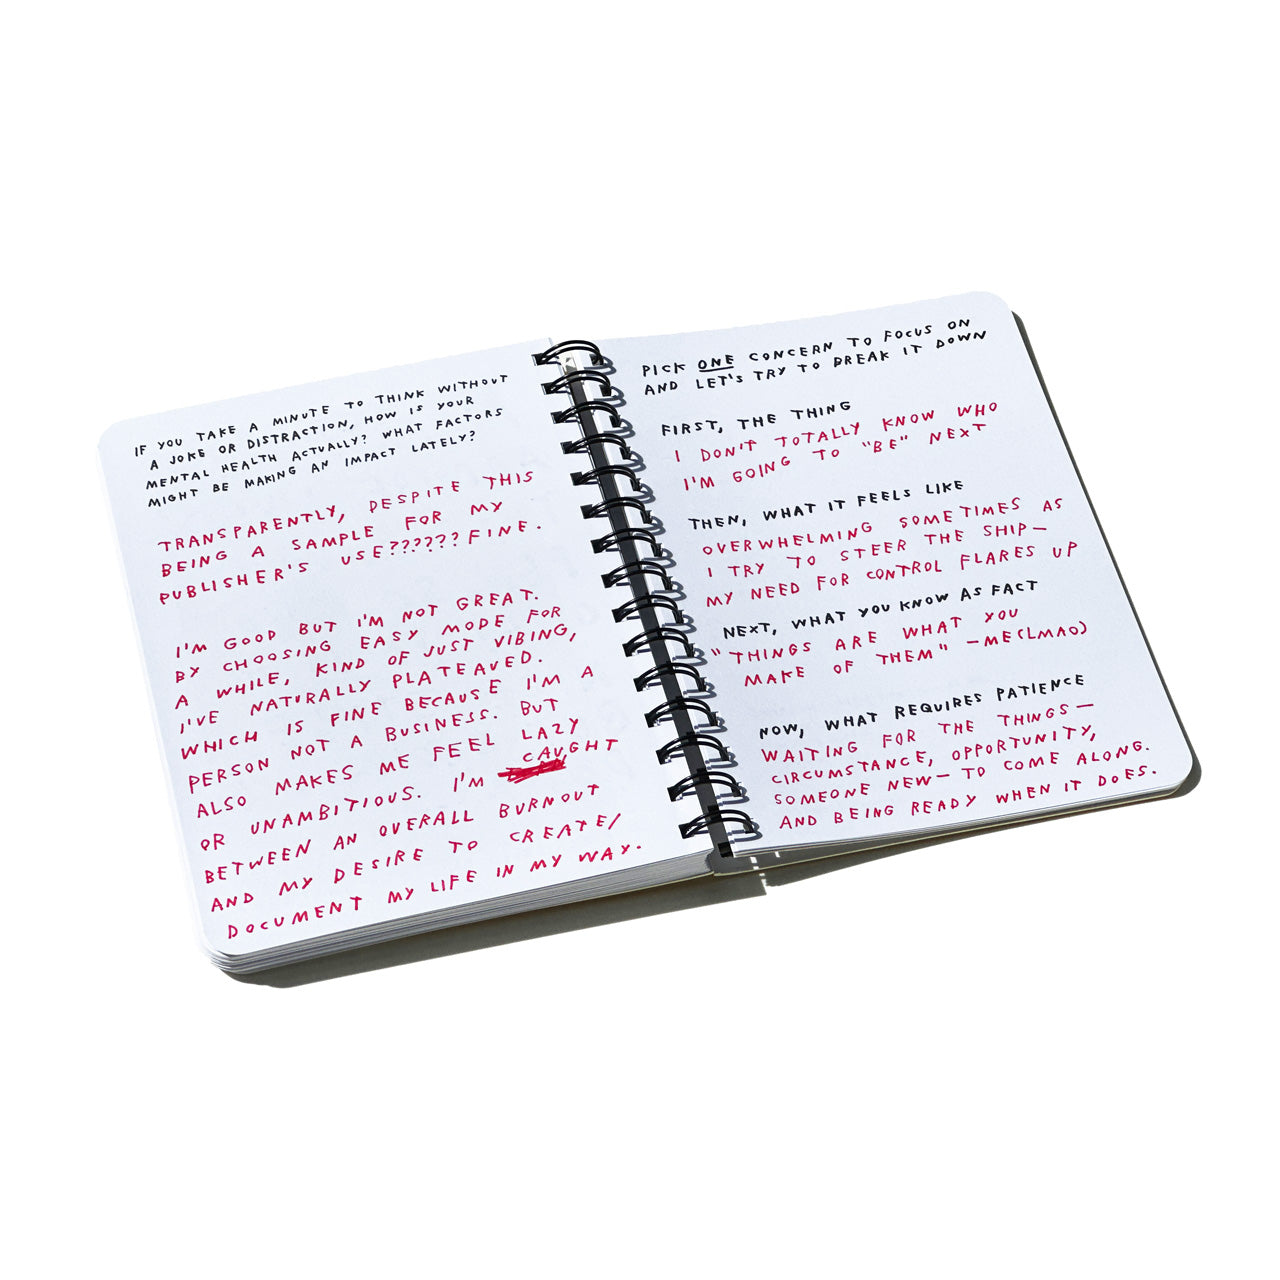 IF YOU TAKE A MINUTE TO THINK WITHOUT
A JOKE OR DISTRACTION, HOW IS YOUR
MENTAL HEALTH ACTUALLY? WHAT FACTORS
MIGHT BE MAKING AN IMPACT LATELY?
TRANSPARENTLY, DESPITE THIS
BEING A SAMPLE FOR MY
PUBLISHER'S USE??????FINE.
I'M GOOD BUT I'M NOT GREAT.
BY CHOOSING EASY MODE FOR
A WHILE, KIND OF JUST VIBING,
I'VE NATURALLY PLATEAUED.
WHICH IS FINE BECAUSE I'M A
PERSON NOT A BUSINESS. BUT
ALSO MAKES ME FEEL LAZY
OR UNAMBITIOUS. I'M CAUGHT
BETWEEN AN OVERALL BURNOUT
AND MY DESIRE TO CREATE/
DOCUMENT MY LIFE IN MY WAY.
PICK ONE CONCERN TO FOCUS ON
AND LET'S TRY TO BREAK IT DOWN
FIRST, THE THING
I DON'T TOTALLY KNOW WHO
I'M GOING TO "BE" NEXT
THEN, WHAT IT FEELS LIKE
OVERWHELMING SOMETIMES AS
I TRY TO STEER THE SHIP—
MY NEED FOR CONTROL FLARES UP
NEXT, WHAT YOU KNOW AS FACT
"THINGS ARE WHAT YOU
MAKE OF THEM" —ME(LMAO)
NOW, WHAT REQUIRES PATIENCE
WAITING FOR THE THINGS—
CIRCUMSTANCE, OPPORTUNITY,
SOMEONE NEW— TO COME ALONG.
AND BEING READY WHEN IT DOES.